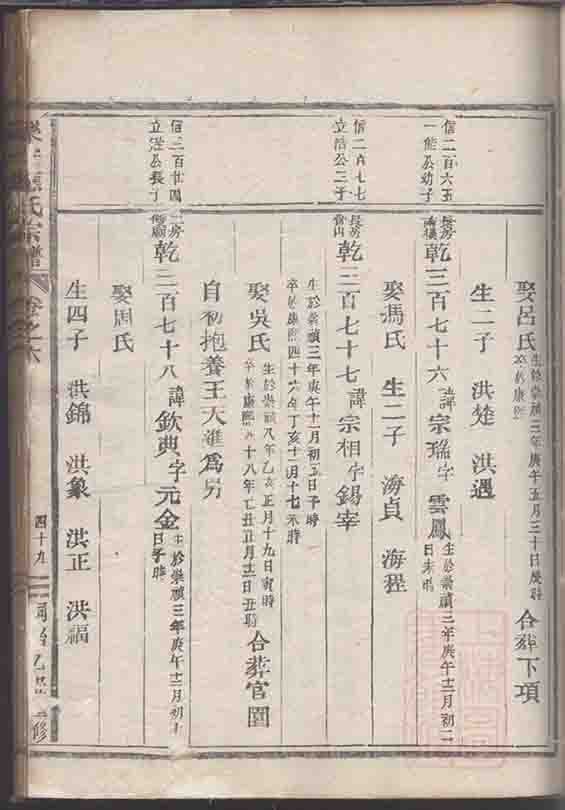 娶呂氏 生於崇禎三年庚午五月三十日辰時 卒於康熙 合葬下項
生二子 洪楚 洪遇
信二百六五 一能公幼子
長房 乾三百七十六 諱宗瑞字雲鳳 生於崇禎三年庚午十二月初二日未時
娶馮氏 生二子 海貞 海
信二百七七 立浩公三子
長房 乾三百七十七 諱宗相字錫宰
生於崇禎三年庚午十二月初五日子時
卒於康熙四十六年丁亥十二月十七 時
娶吳氏 生於崇禎八年乙亥正月十九日寅時 卒於康熙 十八年 丑正月十二日丑時 合葬官園
自幼抱養王大 為男
信三百廿四 立 公長子
房 乾三百七十八 諱欽典字元金 生於崇禎三年庚午十二月初十日子時
娶周氏
生四子 洪錦 洪象 洪正 洪福
氏宗譜 卷之六 四十九 修